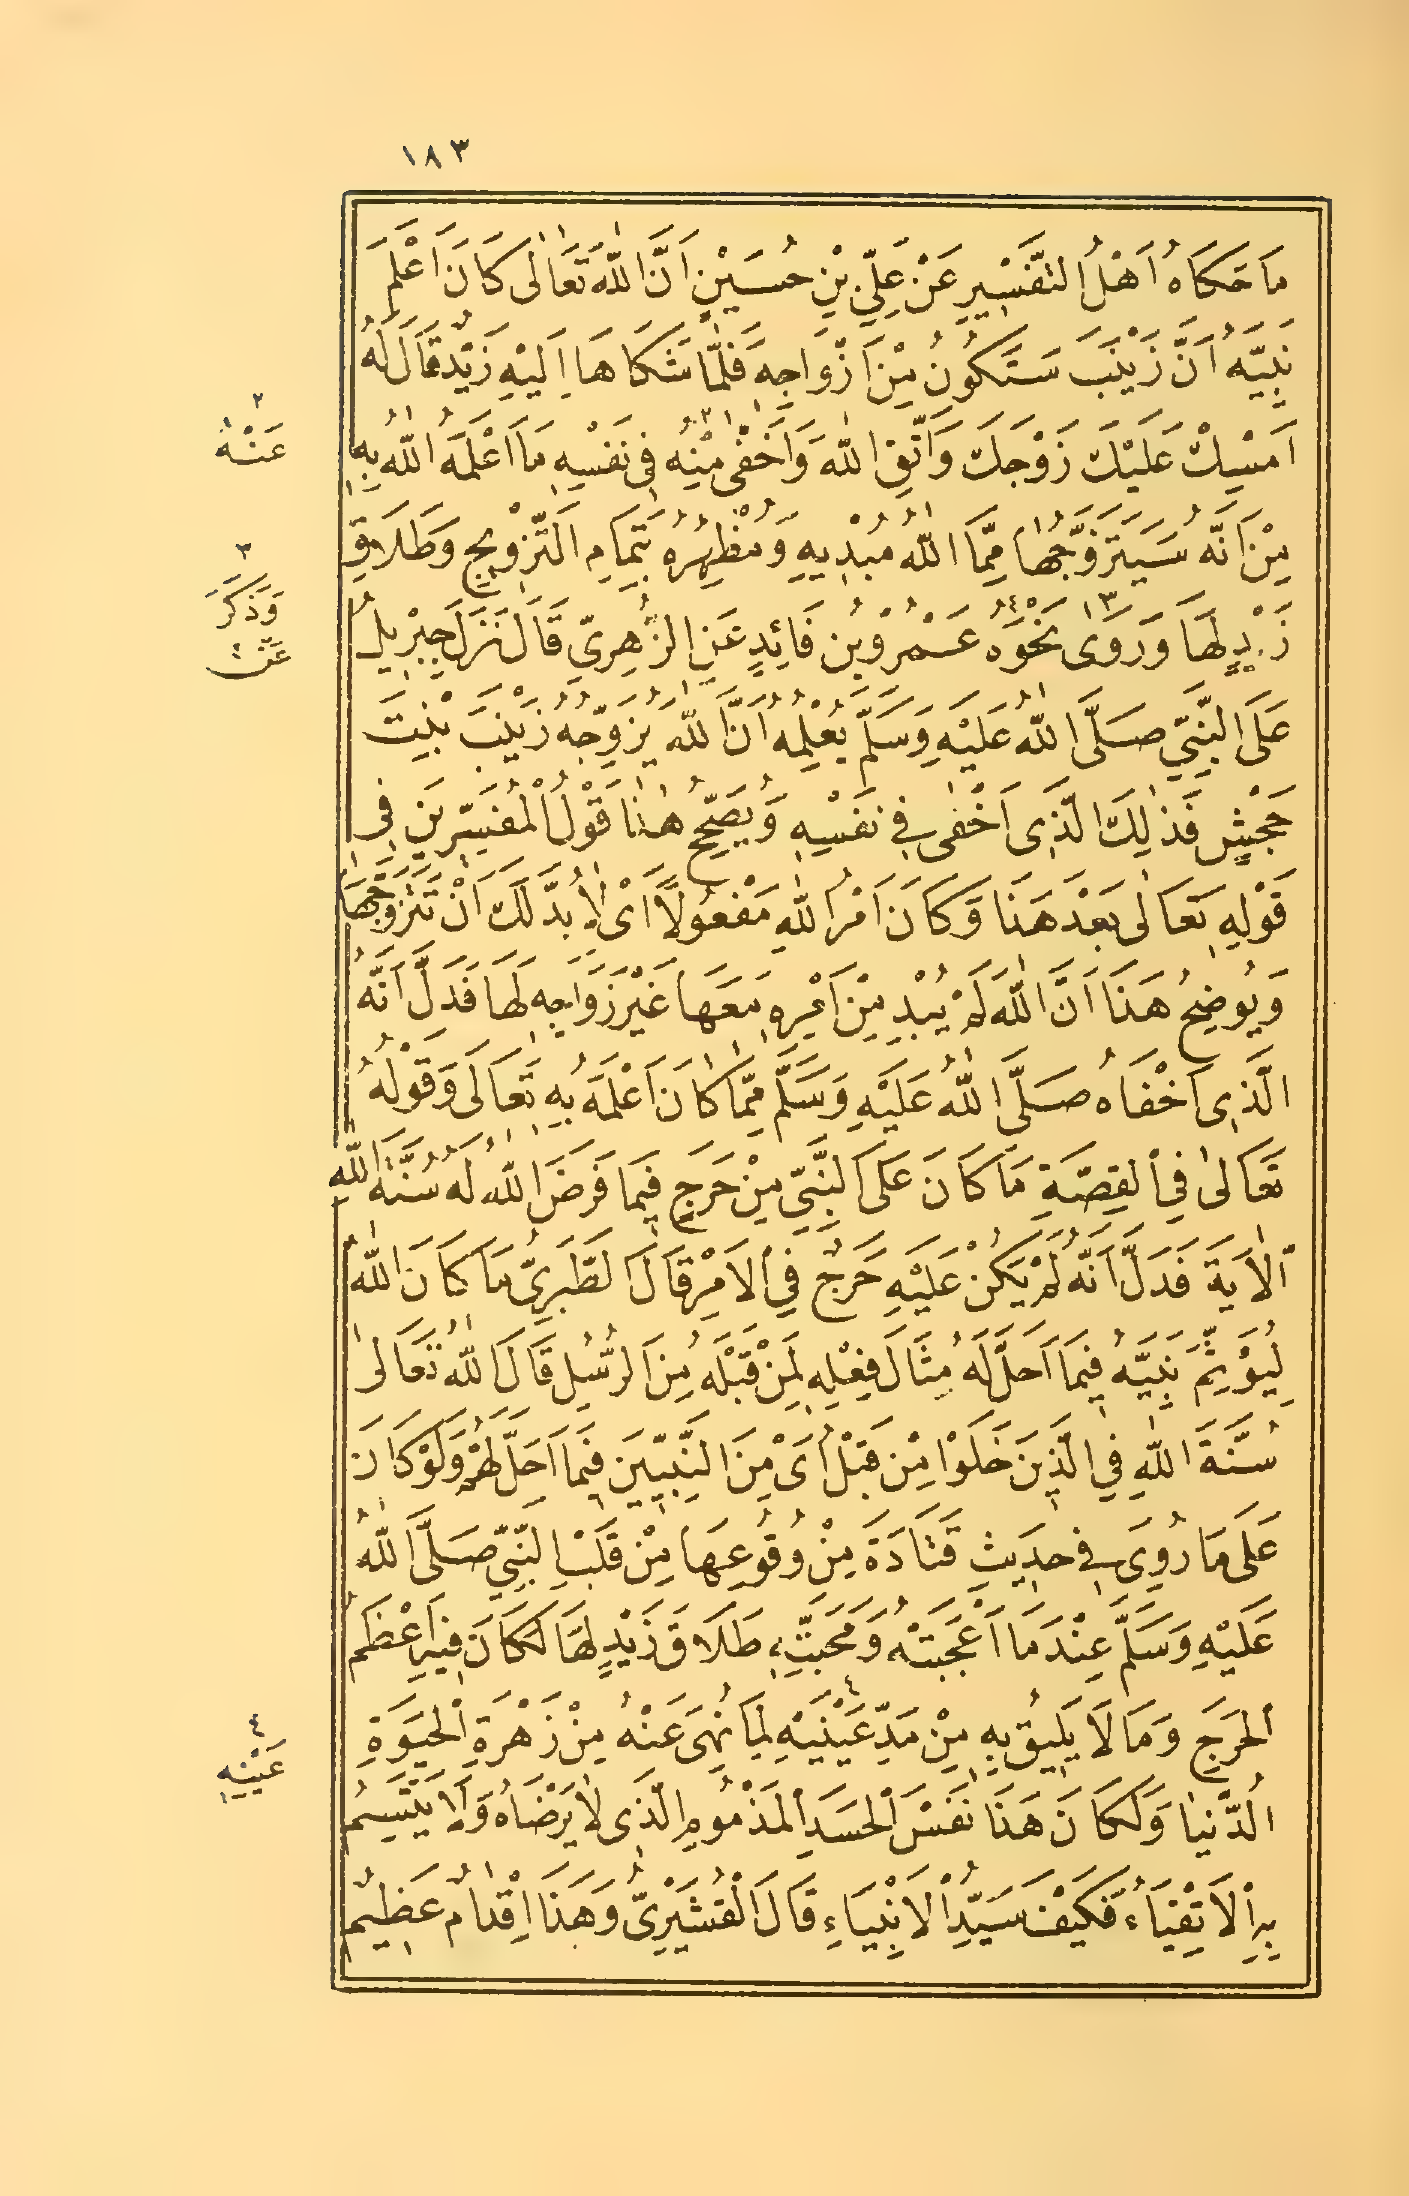 ١٨٣
مَا حَكَاهُ اَهْلُ التَّفْسِيرِ عَنْ عَلِيِّ بْنِ حُسَيْنٍ اَنَّ اللّٰهَ تَعَالٰى كَانَ اَعْلَمَ
نَبِيَّهُ اَنَّ زَيْنَبَ سَتَكُونُ مِنْ اَزْوَاجِهِ فَلَمَّا شَكَاهَا اِلَيْهِ زَيْدٌ قَالَ لَهُ
اَمْسِكْ عَلَيْكَ زَوْجَكَ وَاتَّقِ اللّٰهَ وَاَخْفٰى مِنْهُ فِى نَفْسِهِ مَا اَعْلَمَهُ اللّٰهُ بِهِ
٢
عَنْهُ
مِنْ اَنَّهُ سَيَتَزَوَّجُهَا مِمَّا اللّٰهُ مُبْدِيهِ وَمُظْهِرُهُ بِتَمَامِ التَّزْوِيجِ وَطَلَاقِ
٣
وَذَكَرَ
زَيْدٍ لَهَا وَرَوٰى نَحْوَهُ عَمْرُو بْنُ فَائِدٍ عَنِ الزُّهْرِىِّ قَالَ نَزَلَ جِبْرِيلُ
عَنْ
عَلَى النَّبِيِّ صَلَّى اللّٰهُ عَلَيْهِ وَسَلَّمَ يُعْلِمُهُ اَنَّ اللّٰهَ يُزَوِّجُهُ زَيْنَبَ بِنْتَ
جَحْشٍ فَذٰلِكَ الَّذِى اَخْفٰى فِى نَفْسِهِ وَيُصَحِّحُ هٰذَا قَوْلُ الْمُفَسِّرِينَ فِى
قَوْلِهِ تَعَالٰى بَعْدَ هَذَا وَكَانَ اَمْرُ اللّٰهِ مَفْعُولًا اَىْ لَا بُدَّ لَكَ اَنْ تَتَزَوَّجَهَا
وَيُوضِحُ هَذَا اَنَّ اللّٰهَ لَمْ يُبْدِ مِنْ اَمْرِهِ مَعَهَا غَيْرَ زَوَاجِهِ لَهَا فَدَلَّ اَنَّهُ
الَّذِى اَخْفَاهُ صَلَّى اللّٰهُ عَلَيْهِ وَسَلَّمَ مِمَّا كَانَ اَعْلَمَهُ بِهِ تَعَالَى وَقَوْلُهُ
تَعَالٰى فِى الْقِصَّةِ مَا كَانَ عَلَى النَّبِيِّ مِنْ حَرَجٍ فِيمَا فَرَضَ اللّٰهُ لَهُ سُنَّةَ اللّٰهِ
اَلْاٰيَةَ فَدَلَّ اَنَّهُ لَمْ يَكُنْ عَلَيْهِ حَرَجٌ فِى الْاَمْرِ قَالَ الطَّبَرِىُّ مَا كَانَ اللّٰهُ
لِيُؤَثِّمَ نَبِيَّهُ فِيمَا اَحَلَّ لَهُ مِثَالَ فِعْلِهِ لِمَنْ قَبْلَهُ مِنَ الرُّسُلِ قَالَ اللّٰهُ تَعَالٰى
سُنَّةَ اللّٰهِ فِى الَّذِينَ خَلَوْا مِنْ قَبْلُ اَىْ مِنَ النَّبِيِّينَ فِيمَا اَحَلَّ لَهُمْ وَلَوْ كَانَ
عَلَى مَا رُوِىَ فِى حَدِيثِ قَتَادَةَ مِنْ وُقُوعِهَا مِنْ قَلْبِ النَّبِيِّ صَلَّى اللّٰهُ
عَلَيْهِ وَسَلَّمَ عِنْدَمَا اَعْجَبَتْهُ وَمَحَبَّتِهِ طَلَاقَ زَيْدٍ لَهَا لَكَانَ فِيهِ اَعْظَمُ
الْحَرَجِ وَمَا لَا يَلِيقُ بِهِ مِنْ مَدِّ عَيْنَيْهِ لِمَا نُهِىَ عَنْهُ مِنْ زَهْرَةِ الْحَيٰوةِ
٤
عَيْنِهِ
الدُّنْيَا وَلَكَانَ هَذَا نَفْسَ الْحَسَدِ الْمَذْمُومِ الَّذِى لَا يَرْضَاهُ وَلَا يَتَّسِمُ
بِهِ الْاَتْقِيَاءُ فَكَيْفَ سَيِّدُ الْاَنْبِيَاءِ قَالَ الْقُشَيْرِىُّ وَهَذَا اِقْدَامٌ عَظِيمٌ